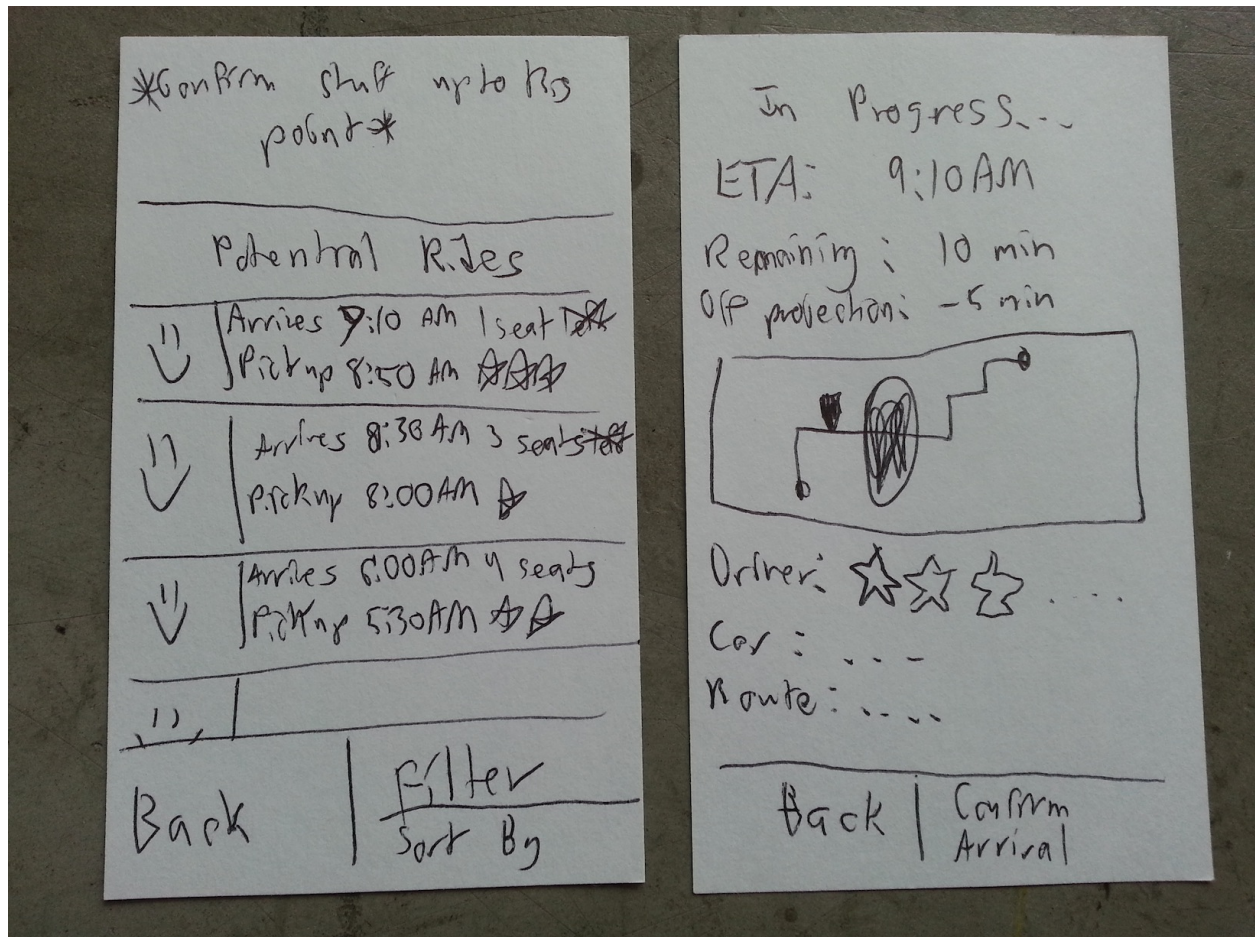 *Confirm stuff up to this
point*
Potential Rides
Arrives 9:10 AM 1 seat
Pickup 8:50 AM
Arrives 8:30 AM 3 seats
Pickup 8:00AM
Arrives 6:00AM 4 seats
Pickup 5:30AM
Back
Filter
Sort By
In Progress...
ETA: 9:10AM
Remaining: 10 min
Off projection: -5 min
Driver: ....
Car: ...
Route: ....
Back
Confirm
Arrival